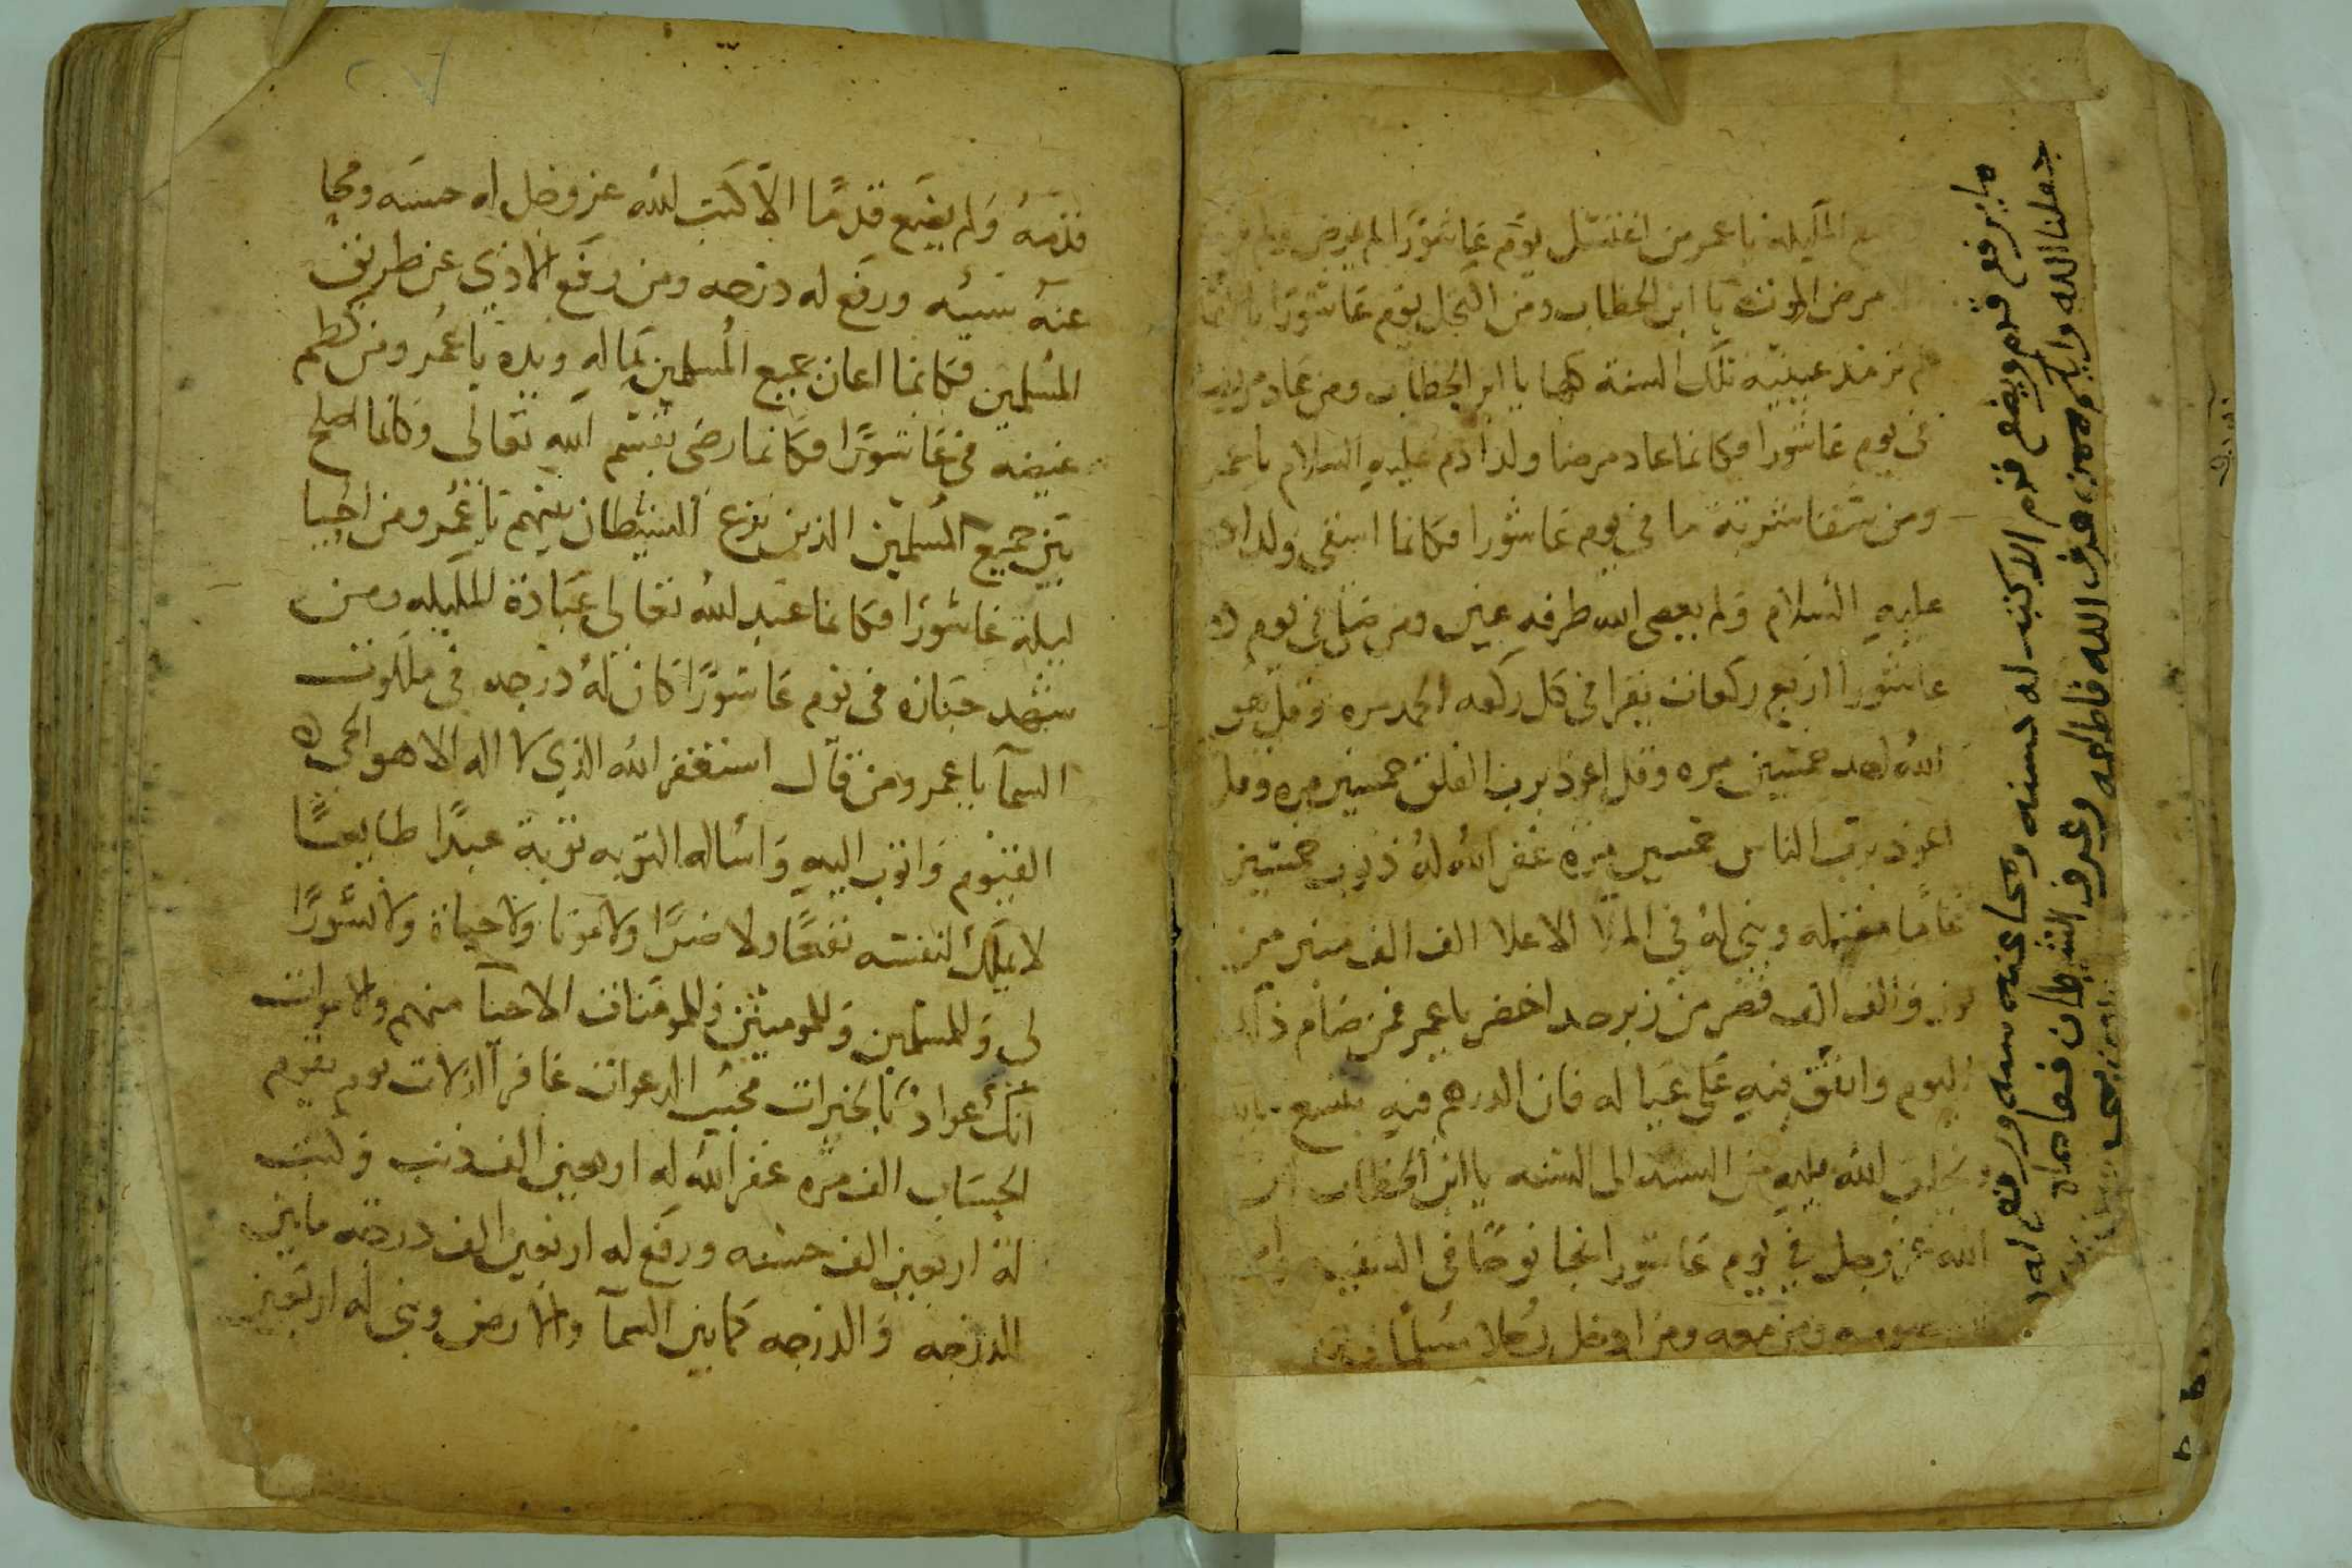 مع الليله يا عمر من اغتسل يوم عاشورا لم يمرض
مرض الموت يا ابن الخطاب ومن اكتحل يوم عاشورا
لم ترمد عينيه تلك السنة كلها يا ابن الخطاب ومن عاد مريضا
في يوم عاشورا فكانما عاد مرضا ولد ادم عليه السلام يا عمر
ومن سقا شربة ما في يوم عاشورا فكانما اسقى ولد ادم
عليه السلام ولم يعصى الله طرفه عين ومن صلى في يوم
عاشورا اربع ركعات يقرا في كل ركعه الحمد مره وقل هو
الله احد خمسين مره وقل اعوذ برب الفلق خمسين مره وقل
اعوذ برب الناس خمسين مره غفر الله له ذنوب خمسين
عاما مقبله وبنى له في الملا الاعلا الف الف منبر من
نور والف الف قصر من زبرجد اخضر يا عمر فمن صام ذلك
اليوم وانفق فيه على عياله فان الدرهم فيه بتسع مايه
يخلف الله عليه من السنه الى السنه يا ابن الخطاب ان
الله عز وجل في يوم عاشورا انجا نوحا في السفينه
ومن معه ومن
ما يرفع قدم ويضع قدم الا كتب له حسنه ومحا عنه سيه ورفع له
جعلنا الله واياكم ممن عرف الله فاطاعه وعرف الشيطان فعصاه
امين
قدمه ولم يضع قدما الا كتب الله عز وجل له حسنه ومحا
عنه سيئه ورفع له درجه ومن رفع الاذي عن طريق
المسلمين فكانما اعان جميع المسلمين بماله ويده يا عمر ومن كظم
غيضه في عاشورا فكانما رضى بقسم الله تعالى وكانما اصلح
بين جميع المسلمين الذين نزع الشيطان بينهم يا عمر ومن احيا
ليلة عاشورا فكانما عبد الله تعالى عبادة الليله ومن
شهد جنازه في يوم عاشورا كان له درجه في ملكوت
السمآ يا عمر ومن قال استغفر الله الذي لا اله الا هو الحي
القيوم واتوب اليه واساله التوبه توبة عبدا طايعا
لا يملك لنفسه نفعا ولا ضرا ولا موتا ولا حياة ولا نشورا
لي وللمسلمين وللمومنين وللمومنات الاحيآ منهم والاموات
انك عواد بالخيرات مجيب الدعوات غافر الزلات يوم يقوم
الحساب الف مره غفر الله له اربعين الف ذنب وكتب
له اربعين الف حسنه ورفع له اربعين الف درجه ما بين
الدرجه والدرجه كما بين السمآ والارض وبنى له اربعين